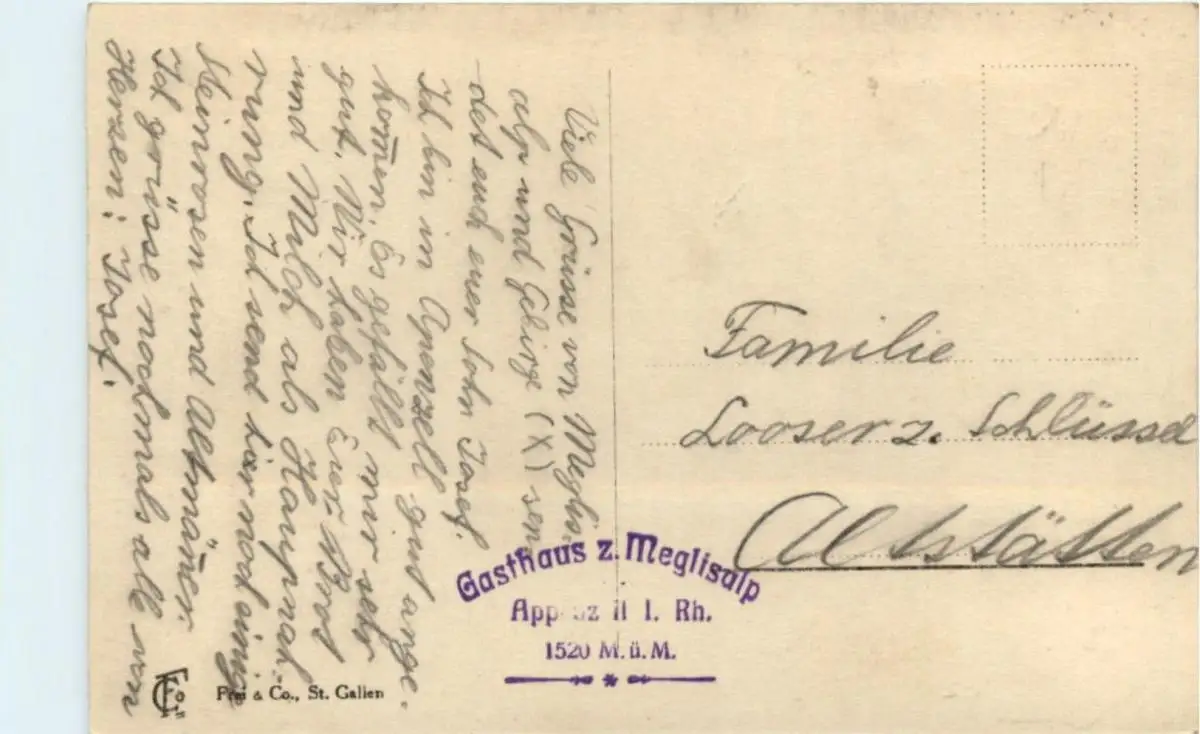 Viele Grüsse von Meglis-
alp und Gebirge (X) sen-
det euch euer Sohn Josef.
Ich bin in Apenzell gut ange-
kom̅en. Es gefällt mir sehr
gut. Wir haben Eier Brot
und Milch als Haupnah-
rung. Ich send hier noch einige
und Altmäner.
Ich grüsse nochmals alle von
Herzen: Josef.
Familie
Looser z. Schlüssel
Altstätten
Gasthaus z. Meglisalp
Appenzell I. Rh.
1520 M. ü. M.
Frei & Co., St. Gallen